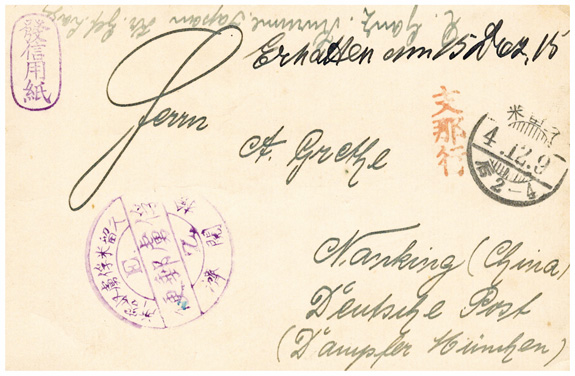 Kurume Japan
發信用紙
Erhalten am 15 Dez. 15
Herrn
A. Grethe
支那行
4.12.9
后2-4
俘虜郵便
檢閲濟
Nanking (China)
Deutsche Post
(Dampfer München)